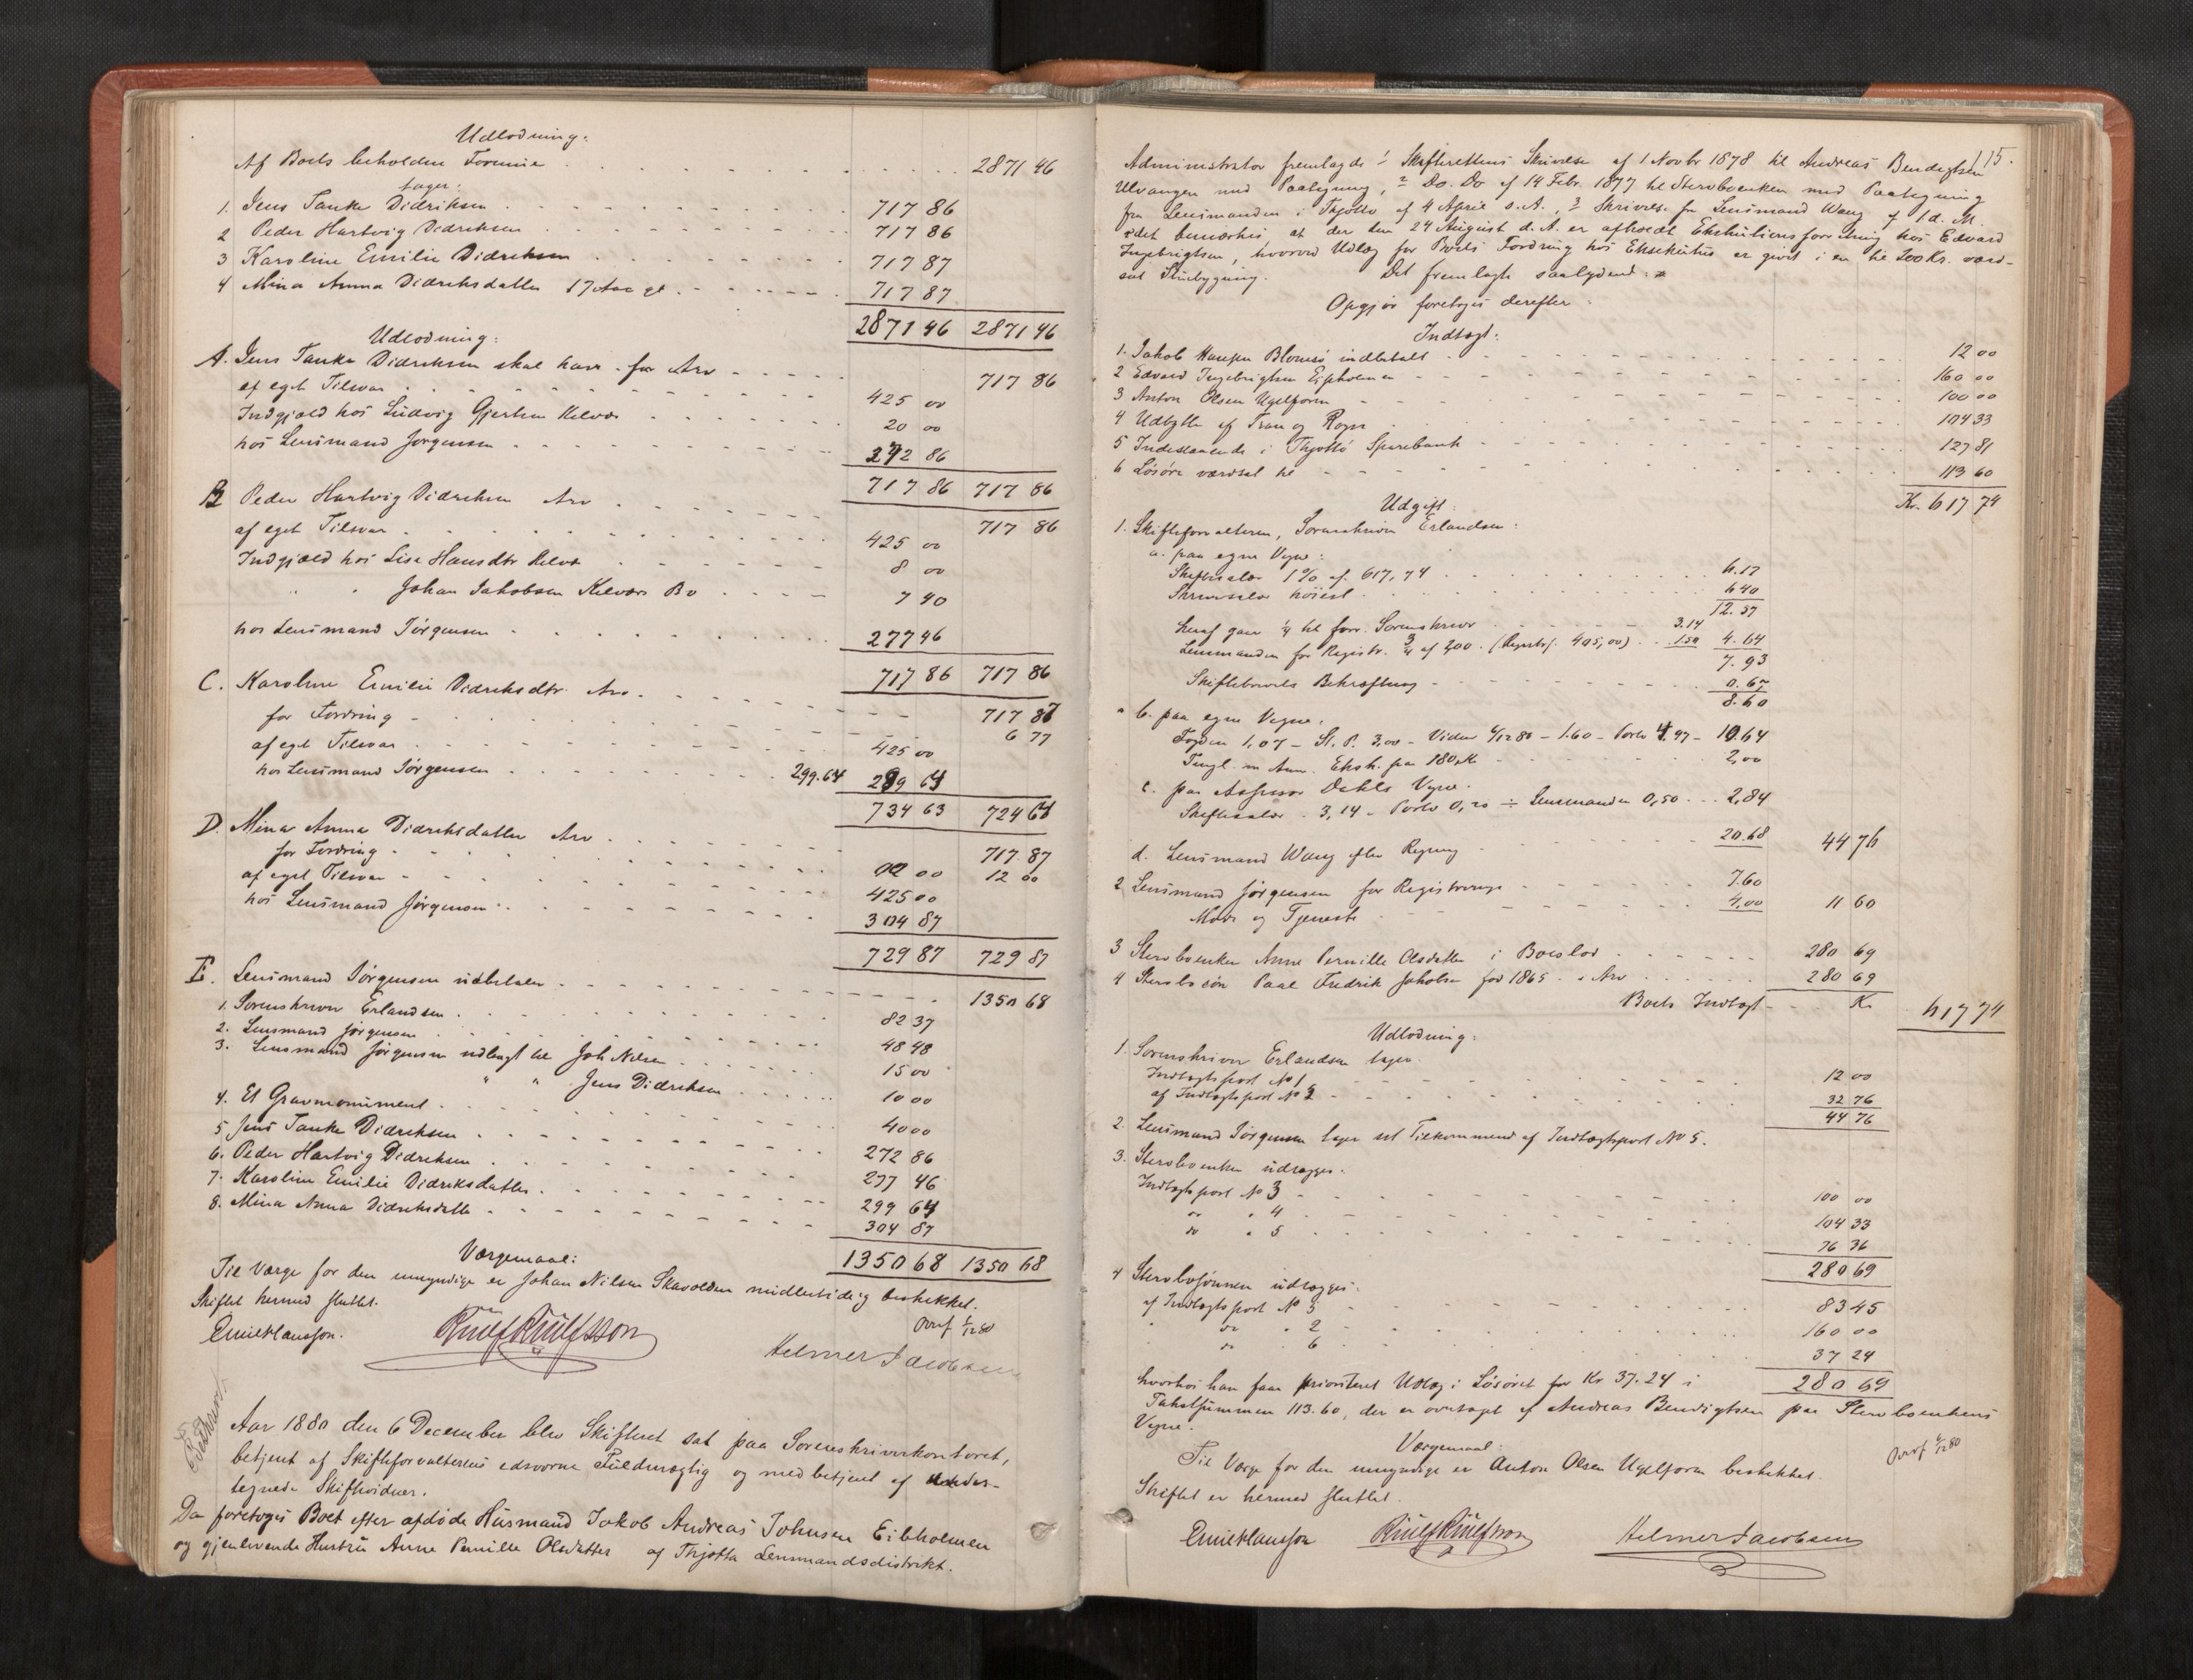 Udlodning:
Af Boets beholdne Formue 2871 46
tager:
1. Jens Tanke Didriksen 717 86
2 Peder Hartvig Didriksen 717 86
3 Karoline Emilie Didriksen 717 87
4 Mina Anna Didriksdatter 17 Aar gl. 717 87
2871 46 2871 46
Udlodning:
A. Jens Tanke Didriksen skal have for Arv 717 86
af eget Tilsvar 425 00
Indgjæld hos Ludvig Gjertsen Kelvær 20 00
hos Lensmand Jørgensen 272 86
717 86 717 86
B Peder Hartvig Didriksen Arv 717 86
af eget Tilsvar 425 00
Indgjæld hos Lise Hansdtr Kelvær 8 00
" " Johan Jakobsen Kelværs Bo 7 40
hos Lensmand Jørgensen 277 46
717 86 717 86
C. Karoline Emilie Didriksdtr. Arv 717 87
for Fordring 6 77
af eget Tilsvar 425 00
hos Lensmand Jørgensen 299.64 299 64
734 63 724 64
D. Mina Anna Didriksdatter Arv 717 87
for Fordring 00 12 00
af eget Tilsvar 425 00
hos Lensmand Jørgensen 304 87
729 87 729 87
E. Lensmand Jørgensen udbetaler 1350 68
1. Sorenskriver Erlandsen 82 37
2. Lensmand Jørgensen 48 48
3. Lensmand Jørgensen udlagt til Joh Nilsen 15 00
" " Jens Didriksen 10 00
4. Et Gravmonument 40 00
5 Jens Tanke Didriksen 272 86
6. Peder Hartvig Didriksen 277 46
7. Karoline Emilie Didriksdatter 299 64
8. Mina Anna Didriksdatter 304 87
1350 68 1350 68
Værgemaal:
Til Værge for den umyndige er Johan Nilsen Skavolden midlertidig beskikket.
Skiftet hermed sluttet.
Ovrf 6/12 80
Emil Hansson. Rnulf Rnulfsson Helmer Jacobsen
Aar 1880 den 6 December blev Skifteret sat paa Sorenskriverkontoret,
betjent af Skifteforvalterens edsvorne Fuldmægtig og med betjent af under-
tegnede Skiftevidner.
Da foretoges Boet efter afdøde Husmand Jakob Andreas Johnsen Eibholmen
og gjenlevende Hustru Anne Pernille Olsdatter af Thjøtta Lensmandsdistrikt.
115.
Administrator fremlagde 1 Skifterettens Skrivelse af 1 Novbr 1878 til Andreas Bendigtsen
Ulvangen med Paategning, 2 Do. Do af 14 Febr. 1877 til Stervboenken med Paategning
fra Lensmanden i Thjøtta af 4 April s.A., 3 Skrivelse fra Lensmand Wang af f.d. M.
idet bemærkes at der den 24 August d.A. er afholdt Exekutionsforretning hos Edvard
Ingebrigtsen, hvorved Udlæg for Boets Fordring hos Exekutus er givet i en til 200 Kr. værd-
sat Stuebygning. Det fremlagte saalydende:
Opgjør foretoges derefter
Indtægt:
1. Jakob Hansen Blomsø indbetalt 12 00
2 Edvard Ingebrigtsen 160 00
3 Anton Olsen Ugelforn 100 00
4 Udbytte af Tran og Rogn 104 33
5 Indestaaende i Thjøttø Sparebank 127 81
6 Løsøre værdsat til 113 60
Kr. 617 74
Udgift:
1. Skifteforvalteren, Sorenskriver Erlandsen:
a. paa egne Vegne:
Skiftesalær 1% af 617,74 6.17
Skriversalær høiest 6 40
12.57
heraf gaar 1/4 til forr. Sorenskriver 3.14
Lensmanden for Registr. 3/4 af 2,00 (Registrf. 405,00) 1.50 4.64
7.93
Skiftebrevets Bekræftning 0.67
8.60
b. paa egne Vegne.
Fogden 1,07 - St. P. 3,00 - Vidner 6/12 80 - 1.60 - Porto 4.97 - 10.64
Tingl. m Ann. Eksk. paa 180 Kr 2,00
c. paa Assessor Dahls Vegne.
Skiftesalær 3,14 - Porto 0,20 ÷ Lensmanden 0,50 2,84
d. Lensmand Wang efter Regning 20.68 44 76
2 Lensmand Jørgensen for Registrering 7.60
Møde og Tjeneste 4,00 11 60
3 Stervboenken Anne Pernille Olsdatter i Boeslod 280 69
4 Stervbosøn Paal Fredrik Jakobsen fød 1865 i Arv 280 69
Boets Indtægt Kr. 617 74
Udlodning:
1. Sorenskriver Erlandsen tager
Indtægtspost No 1 12 00
af Indtægtspost No 6 32 76
44 76
2. Lensmand Jørgensen tager sit Tilkommende af Indtægtspost No 5.
3. Stervboenken udlægges.
Indtægtspost No 3 100 00
do " 4 104 33
do " 5 76 36
280 69
4 Stervbosønnen udlægges.
af Indtægtspost No 5 83 45
" do " 2 160 00
" do " 6 37 24
280 69
hvorhos han faar prioriteret Udlæg i Løsøret for Kr 37.24 i
Takstsummen 113.60, der er overtaget af Andreas Bendigtsen paa Stervboenkens
Vegne.
Værgemaal:
Til Værge for den umyndige er Anton Olsen Ugelforn beskikket.
Ovrf 6/12 80
Skiftet er hermed sluttet.
Emil Hansson Rnulf Rnulfsson Helmer Jacobsen